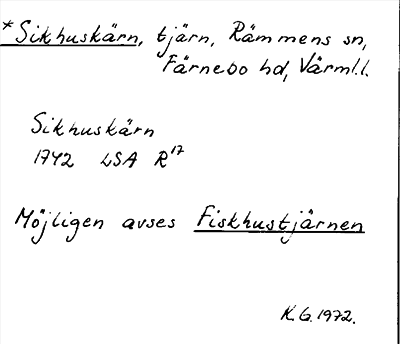 *Sikhuskärn, tjärn, Rämmens sn,
Färnebo hd, Värml.l.
Sikhuskärn
1742 LSA R17
Möjligen avses Fiskhustjärnen
K.G. 1972.